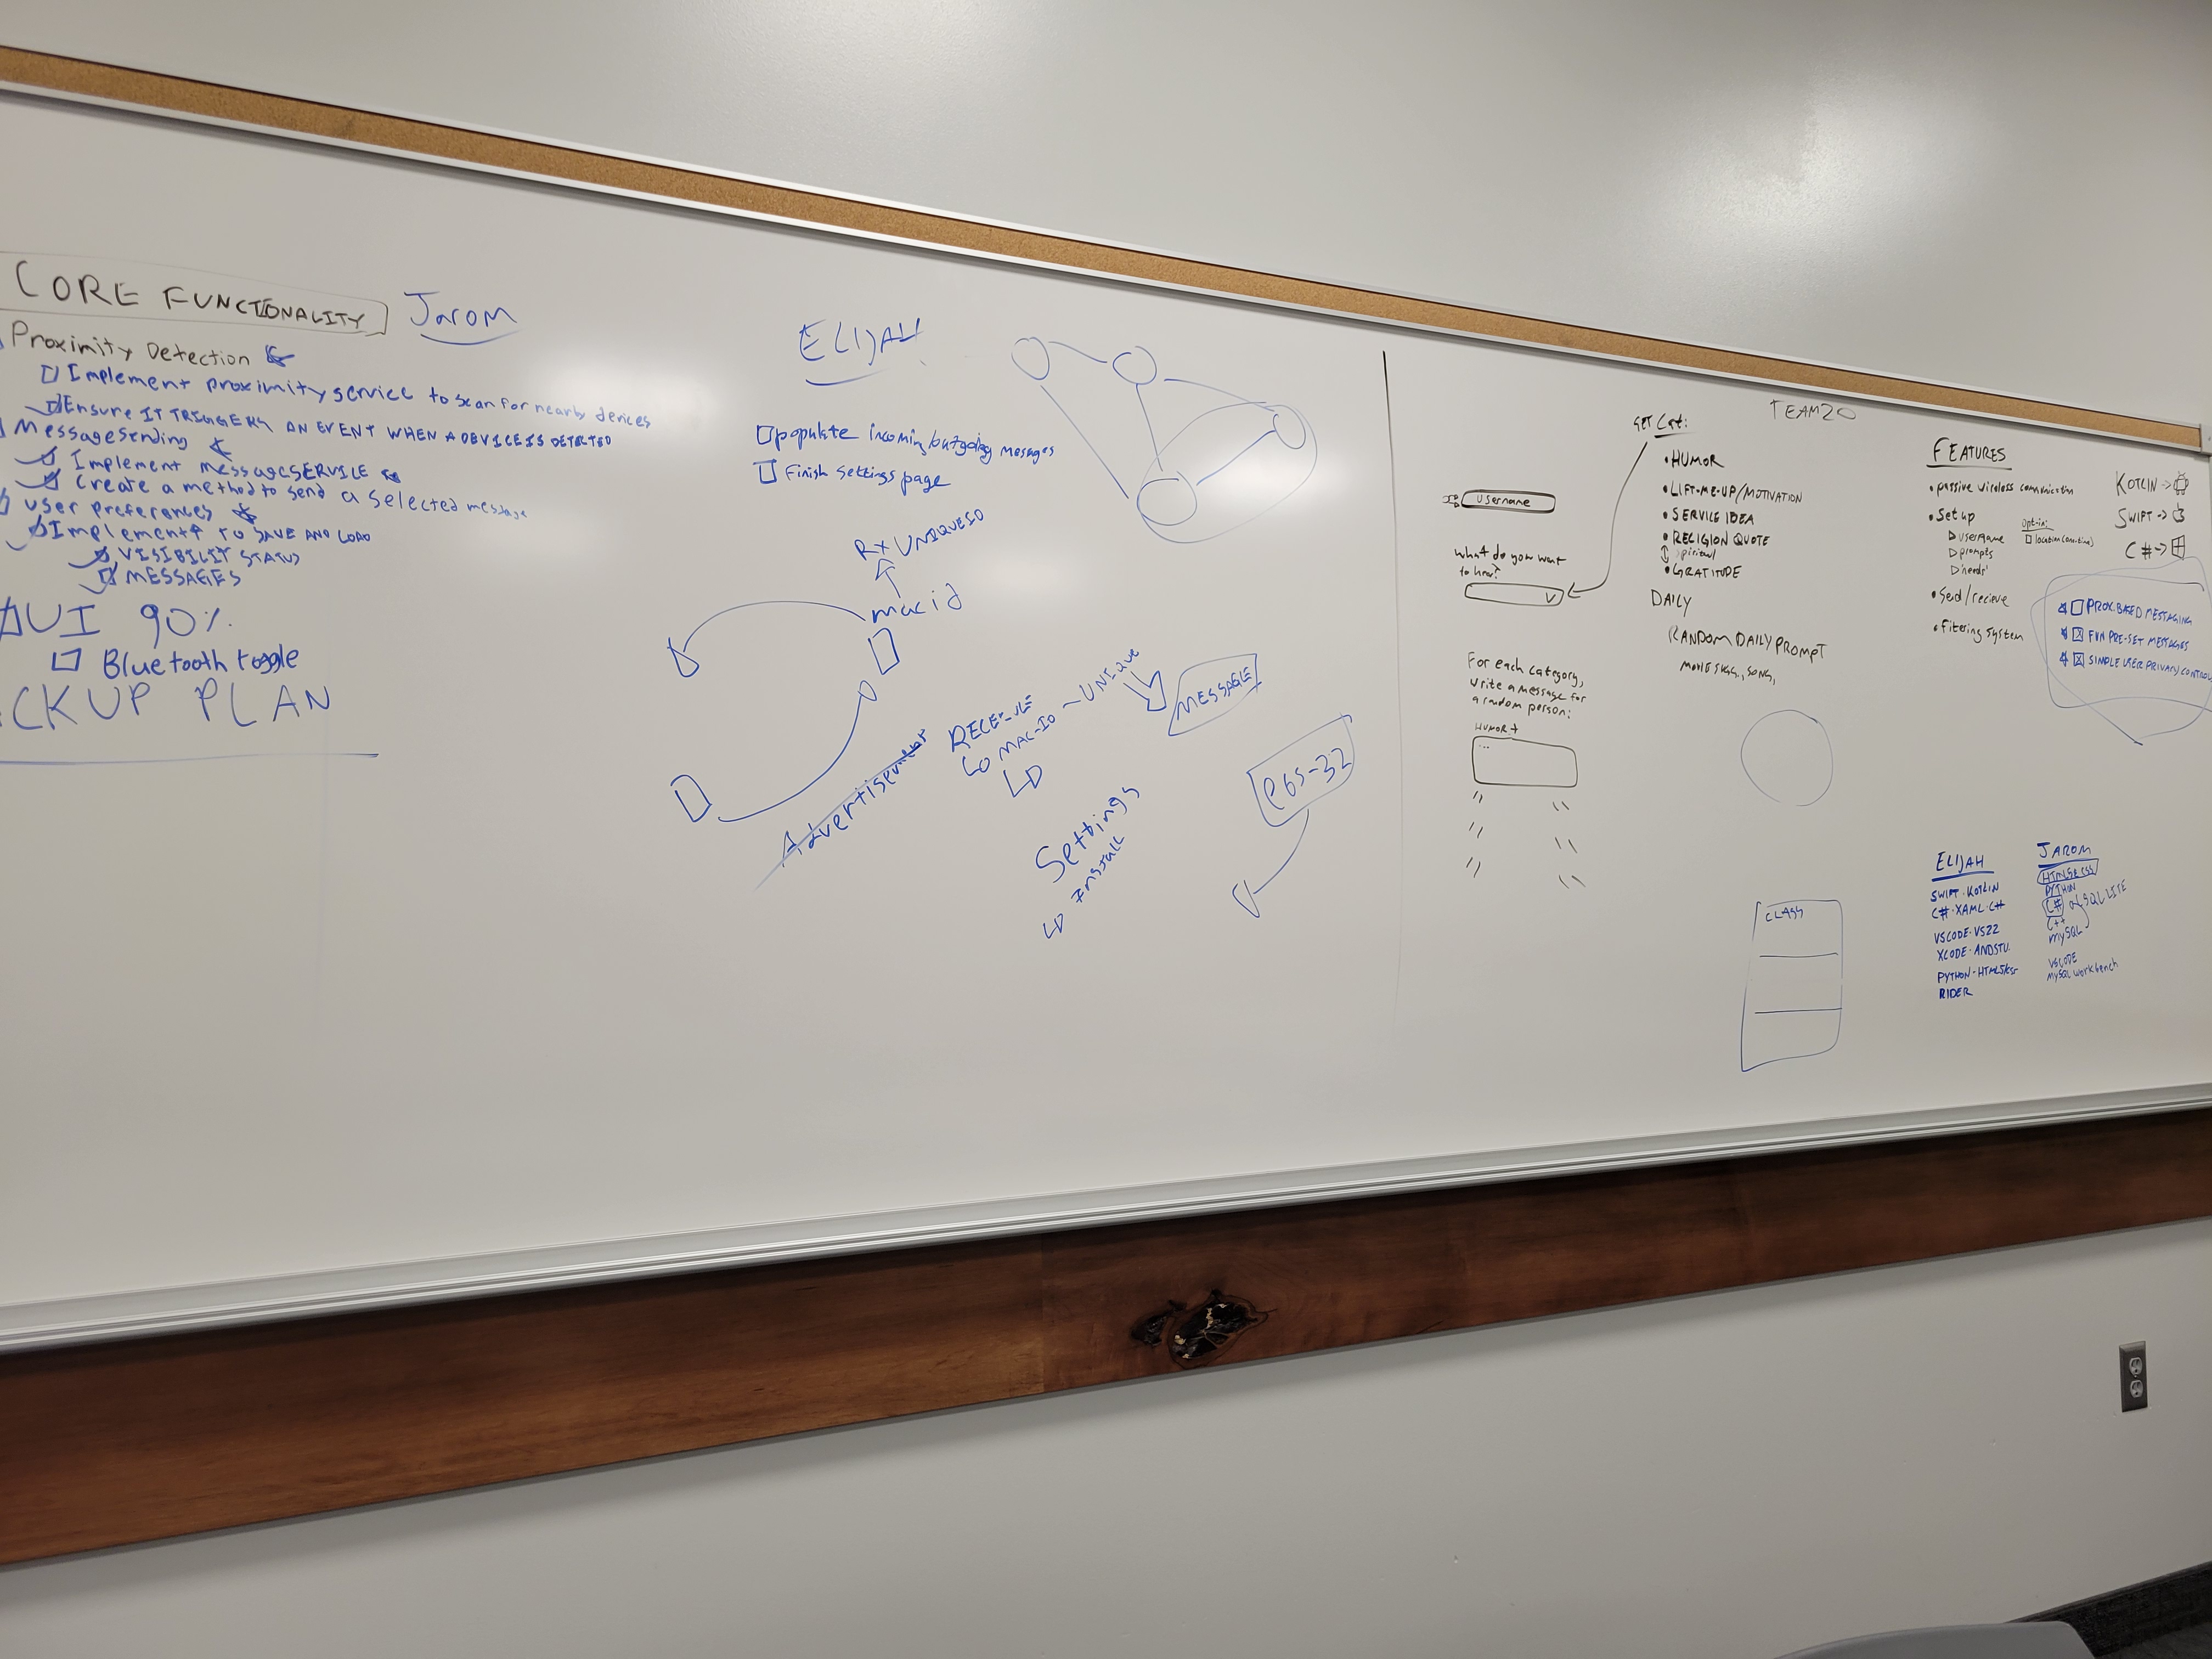 CORE FUNCTIONALITY
Jarom
Proximity Detection
Implement proximity service to scan for nearby devices
Ensure IT TRIGGERS AN EVENT WHEN A DEVICE IS DETECTED
Message Sending
Implement messageSERVICE
Create a method to send a selected message
User preferences
Implement TO SAVE AND LOAD
VISIBILITY STATUS
MESSAGES
UI 90%
Bluetooth toggle
CKUP PLAN
ELIJAH
populate incoming/outgoing messages
Finish settings page
RX UNIQUEID
mac id
Advertisement
RECEIVE
MAC-ID ~UNIQUE
MESSAGE
Settings
Install
e65-32
TEAM20
GET Cat:
• HUMOR
• LIFT-ME-UP/MOTIVATION
• SERVICE IDEA
• RELIGION QUOTE
spiritual
• GRATITUDE
username
what do you want
to hear?
DAILY
RANDOM DAILY PROMPT
For each category,
write a message for
a random person:
HUMOR →
...
CLASS
FEATURES
• passive wireless communication
• Setup
username
prompts
'needs'
opt-in:
• Send/recieve
• Filtering system
KOTLIN →
SWIFT →
C# →
PROX. BASED MESSAGING
FUN PRE-SET MESSAGES
SINGLE USER PRIVACY CONTROL
ELIJAH
SWIFT · KOTLIN
C# · XAML · C#
VSCODE · VS22
XCODE · ANDSTU.
PYTHON · HTML5/CSS
RIDER
JAROM
HTML5&CSS
PYTHON
C# SQLITE
C++
MySQL
VSCODE
MySQL workbench